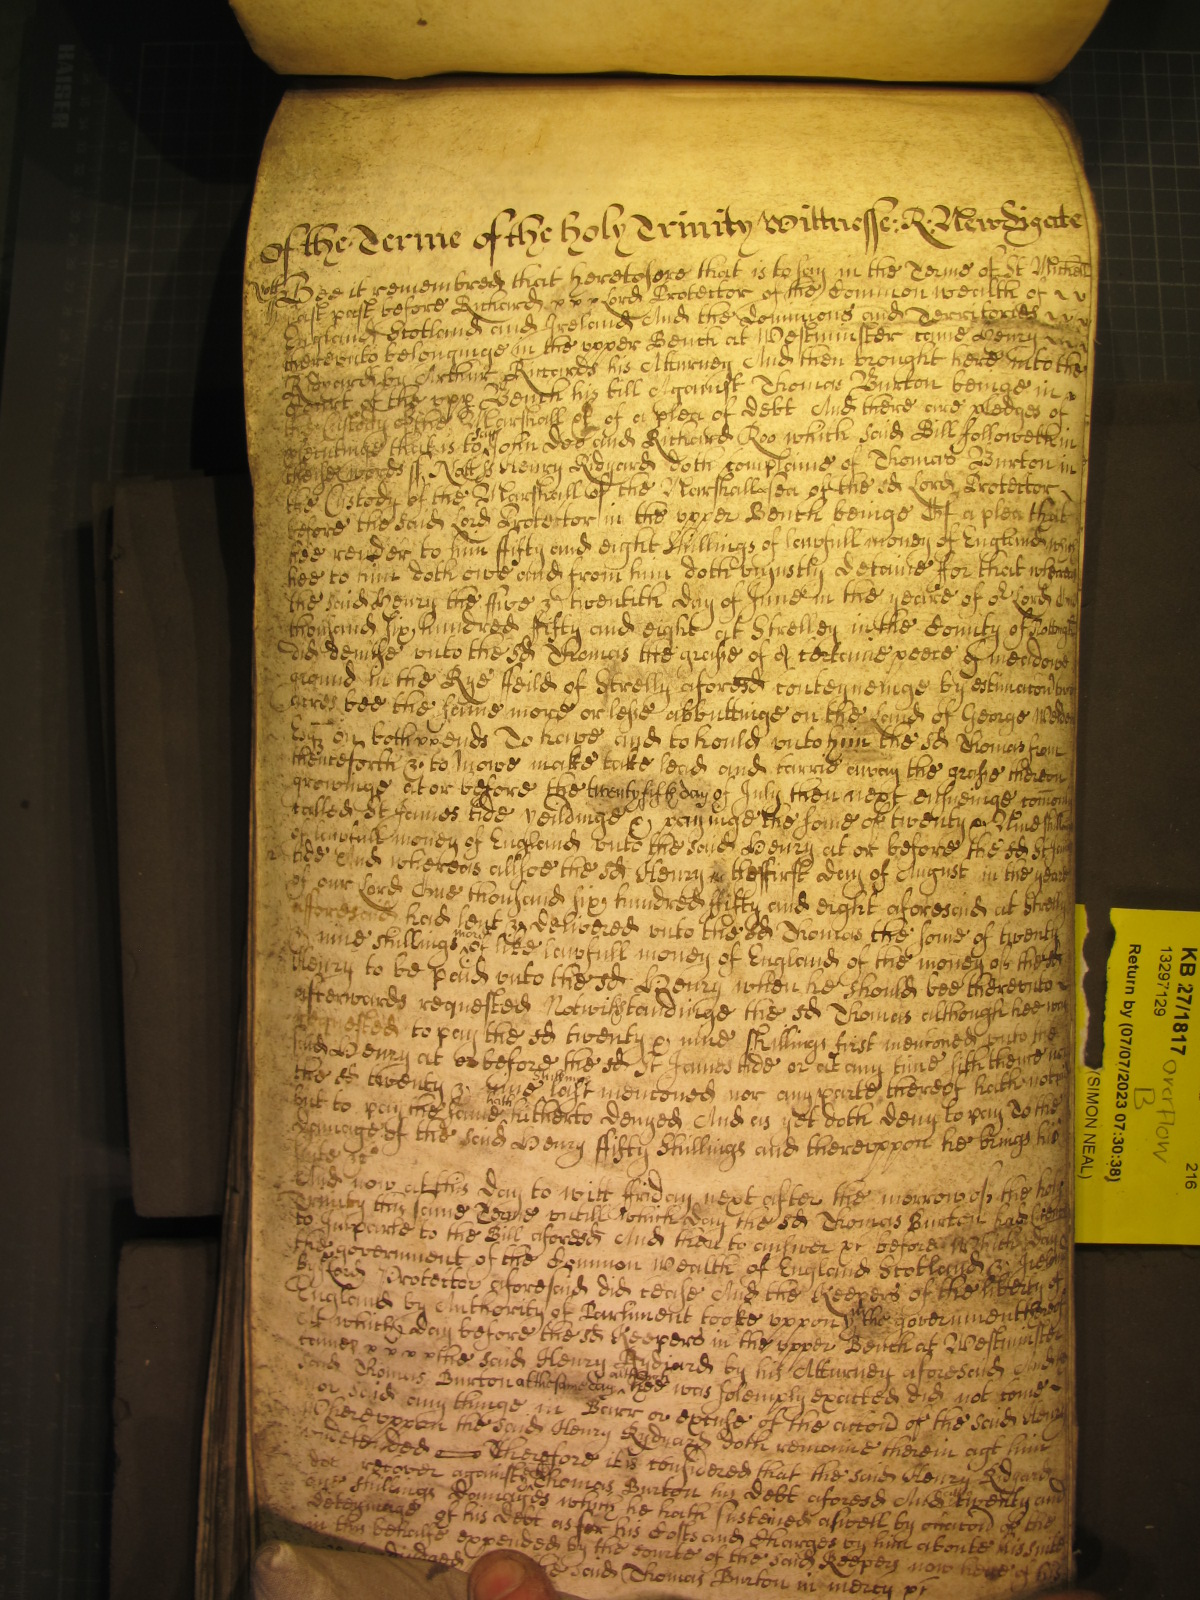 Of the Terme of the holy Trinity Wittnesse: R: Newdigate
Nott ss Bee it remembred that heretofore that is to say in the Terme of St Michaell
last past before Richard Lord Protector of the Common wealth of
England Scotland and Ireland And the Dominions and Territories
therevnto belonginge in the vpper Bench at Westminster came Henry
Ridyard by Arthur Ricards his Atturney And then brought here into the
Court of the vpp Bench his bill Against Thomas Burton beinge in
the Custody of the Marshall &c of a plea of debt And there are pledges of
prosecutinge that is to say John Doo and Richard Roo which said Bill followeth in
these words ss Nott ss Henry Ridyard doth complaine of Thomas Burton in
the Custody of the Marshall of the Marshallsea of the sd Lord Protector
before the said Lord Protector in the vpper Bench beinge Of a plea that
hee render to him fifty and eight shillings of lawfull money of England which
hee to him doth owe and from him doth vniustly detaine For that whereas
the said Henry the five & twentith day of June in the yeare of or Lord One
thousand six hundred fifty and eight at Strelley in the County of Nottingh
did demise vnto the sd Thomas the grasse of A certaine peece of meadowe
ground in the Rye feild of Strelly aforesd conteyneinge by estimacon
acres bee the same more or lesse abbuttinge on the Land of George
on both ends To have and to hould vnto him the sd Thomas from
thenceforth & to mowe make take lead and carrie away the grasse thereon
growinge at or before the twenty fifth day of July then next ensueinge comonly
called St James tide yeildinge & payinge the some of twenty & Nine shillings
of lawfull money of England vnto the said Henry at or before the sd St James
tide And whereas allsoe the sd Henry the first day of August in the yeare
of our Lord One thousand six hundred fifty and eight aforesaid at Strelly
afforesaid had lent & delivered vnto the sd Thomas the some of twenty
& nine shillings more of like lawfull money of England of the money of the sd
Henry to be paid vnto the sd Henry when he should bee therevnto
afterwards requested Notwithstandinge the sd Thomas although hee was
requested to pay the sd twenty & nine shillings first mentoned vnto the
said Henry at or before the sd St James tide or at any time sith thence nor
the sd twenty & nine shillings last mentoned nor any parte thereof hath not paid
but to pay the same hath hitherto denyed And as yet doth deny to pay To the
damage of the said Henry fifty shillings and therevppon he brings his
suite &c
And now at this day to witt Friday next after the morrow of the holy
Trinity this same Terme vntill which day the sd Thomas Burton had licence
to imparle to the Bill aforesd And then to answer &c before which day
the government of the Common Wealth of England Scotland & Ireland
by Lord Protector aforesaid did cease And the Keepers of the liberty of
England by Authority of Parliment tooke vppon ym the government thereof
At which day before the sd Keepers in the vpper Bench at Westminster
comes the said Henry Rydyard by his Atturney aforesaid And the
said Thomas Burton at the same day although hee was solemply exacted did not come
or said any thinge in Barr or excuse of the accon of the said Henry
Wherevppon the said Henry Rydyard doth remaine therein agt him
vndefended Therefore it is considered that the said Henry Ridyard
doe recover against the sd Thomas Burton his debt aforesd And twenty and
one shillings damages which he hath susteined aswell by occacon of the
deteyninge of his debt as for his Costs and Charges by him aboute his suite
in this behalfe expended by the courte of the said Keepers now here
said Thomas Burton in mercy &c
KB 27/1817
13297129
overflow
B
216
Return by (07/07/2023 07:30:38)
(SIMON NEAL)
KAISER